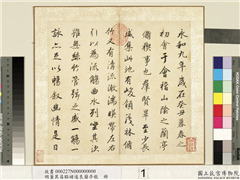 永和九年歲在癸丑暮春之
初會于會稽山陰之蘭亭
脩稧事也羣賢畢至少長
咸集此地有峻領茂林脩
竹又有清流激湍映帶左右
引以為流觴曲水列坐其次
雖無絲竹管絃之盛一觴一
詠亦足以暢敘幽情是日
故書000227N000000000
1
國立故宮博物院